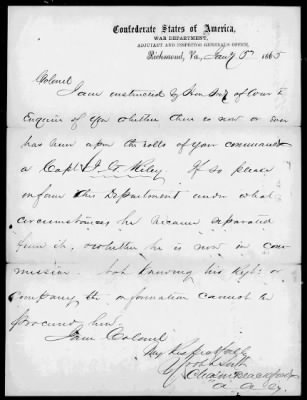 Confederate States of America,
WAR DEPARTMENT,
ADJUTANT AND INSPECTOR GENERAL'S OFFICE,
Richmond, Va., Jan'y 5th 1865
Colonel
I am instructed by Hon Sec of War to
Enquire of you whether there is now or ever
has been upon the rolls of your command
a Capt Riley. If so please
inform this Department under what
circumstances he became separated
from it, & whether he is now in com
mission. Not knowing his Reg't or
Company, the information cannot be
procured here.
I am Colonel
Very Respectfully
Your obt Servt
A. A. G.